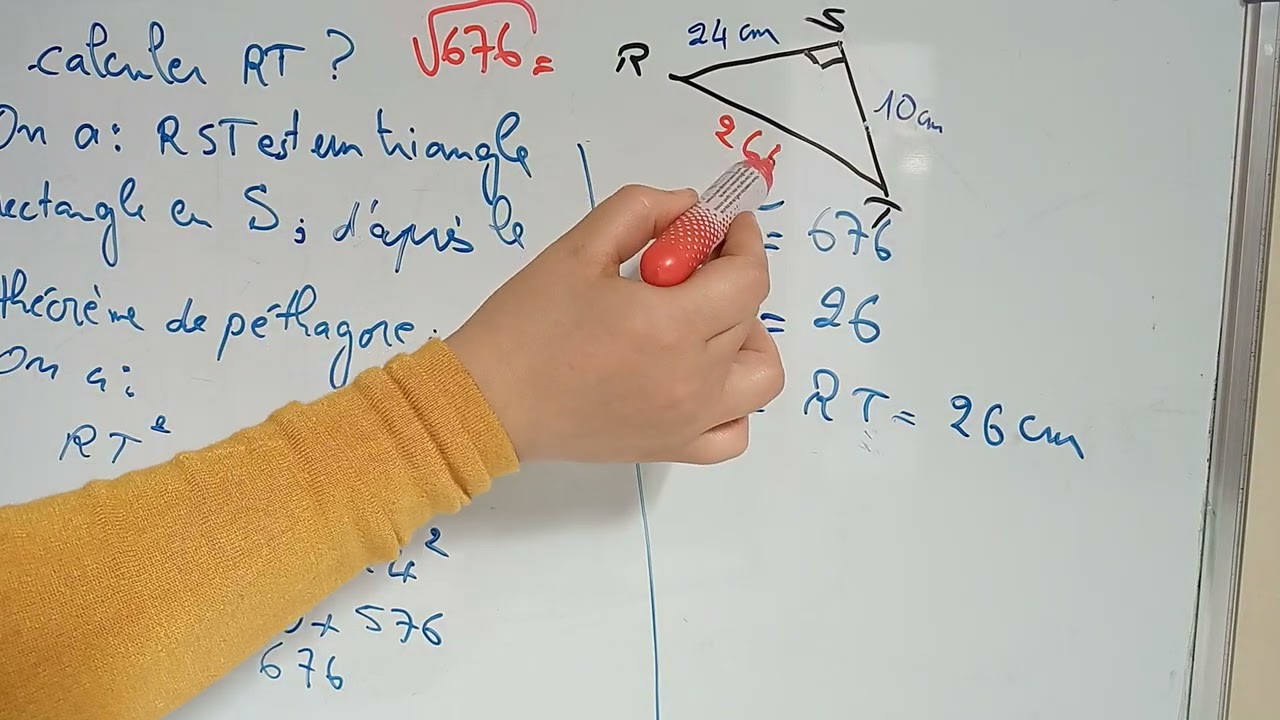 calculer RT ? √676 =
On a : RST est un triangle
rectangle en S ; d'après le
théorème de péthagore.
On a :
RT²
4²
+ 576
676
24 cm
S
R
10 cm
26
T
= 676
= 26
RT = 26 cm